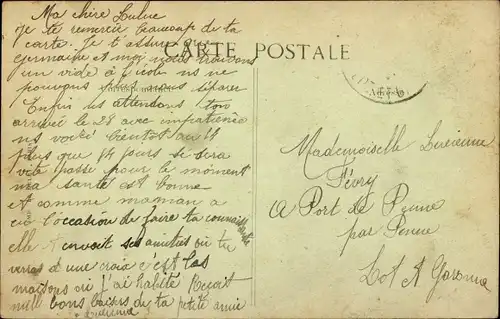 Ma chère Lulue
je te remercie beaucoup de ta
carte. Je t'assure que
Germaine et moi nous trouvons
un vide à l'école ns ne
pouvons pas nous séparer
Enfin ns attendons ton
arrivée le 28 avec impatience
ns voici bientôt au 14
plus que 14 jours se sera
vite passé pour le moment
ma santé est bonne
et comme maman a
eu l'occasion de faire ta connaissance
elle t'envoit ses amitiés où tu
verras une croix c'est las
maisons où j'ai habité Reçoit
mille bons baisers de ta petite amie
CARTE POSTALE
Adresse
Mademoiselle Lucienne
Févry
A Port de Penne
par Penne
Lot et Garonne